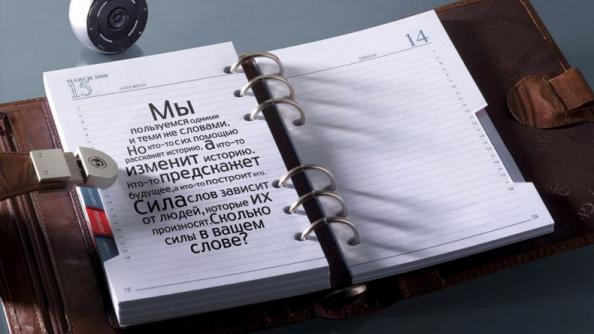 MARCH 2008
15
SATURDAY
Мы
пользуемся одними
и теми же словами.
Но кто-то с их помощью
расскажет историю, а кто-то
изменит историю.
Кто-то предскажет
будущее, а кто-то построит его.
Сила слов зависит
от людей, которые их
произносят. Сколько
силы в вашем
слове?
18
FRIDAY
14